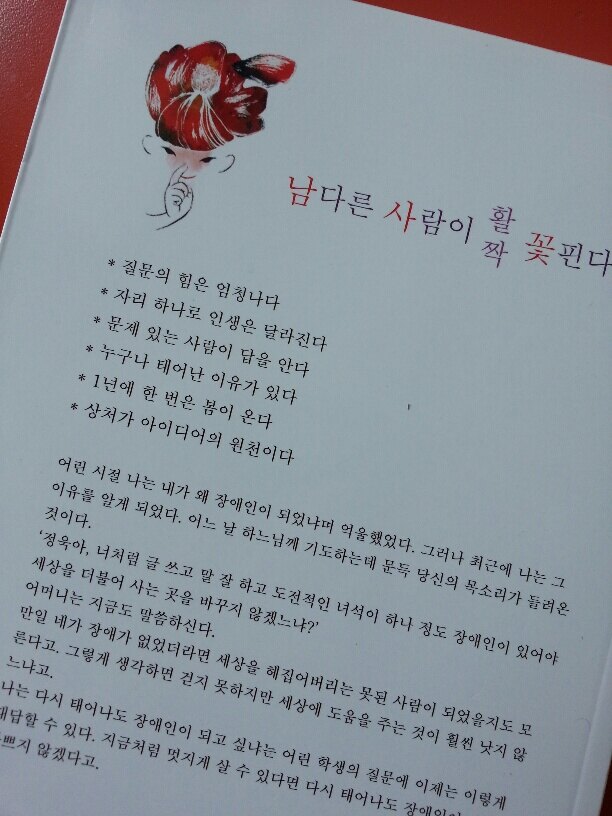 남다른 사람이 활짝 꽃핀다
* 질문의 힘은 엄청나다
* 자리 하나로 인생은 달라진다
* 문제 있는 사람이 답을 안다
* 누구나 태어난 이유가 있다
* 1년에 한 번은 봄이 온다
* 상처가 아이디어의 원천이다
어린 시절 나는 내가 왜 장애인이 되었냐며 억울했었다. 그러나 최근에 나는 그
이유를 알게 되었다. 어느 날 하느님께 기도하는데 문득 당신의 목소리가 들려온
것이다.
‘정욱아, 너처럼 글 쓰고 말 잘 하고 도전적인 녀석이 하나 정도 장애인이 있어야
세상을 더불어 사는 곳을 바꾸지 않겠느냐?’
어머니는 지금도 말씀하신다.
만일 네가 장애가 없었더라면 세상을 헤집어버리는 못된 사람이 되었을지도 모
른다고. 그렇게 생각하면 걷지 못하지만 세상에 도움을 주는 것이 훨씬 낫지 않
느냐고.
나는 다시 태어나도 장애인이 되고 싶냐는 어린 학생의 질문에 이제는 이렇게
대답할 수 있다. 지금처럼 멋지게 살 수 있다면 다시 태어나도
쁘지 않겠다고.